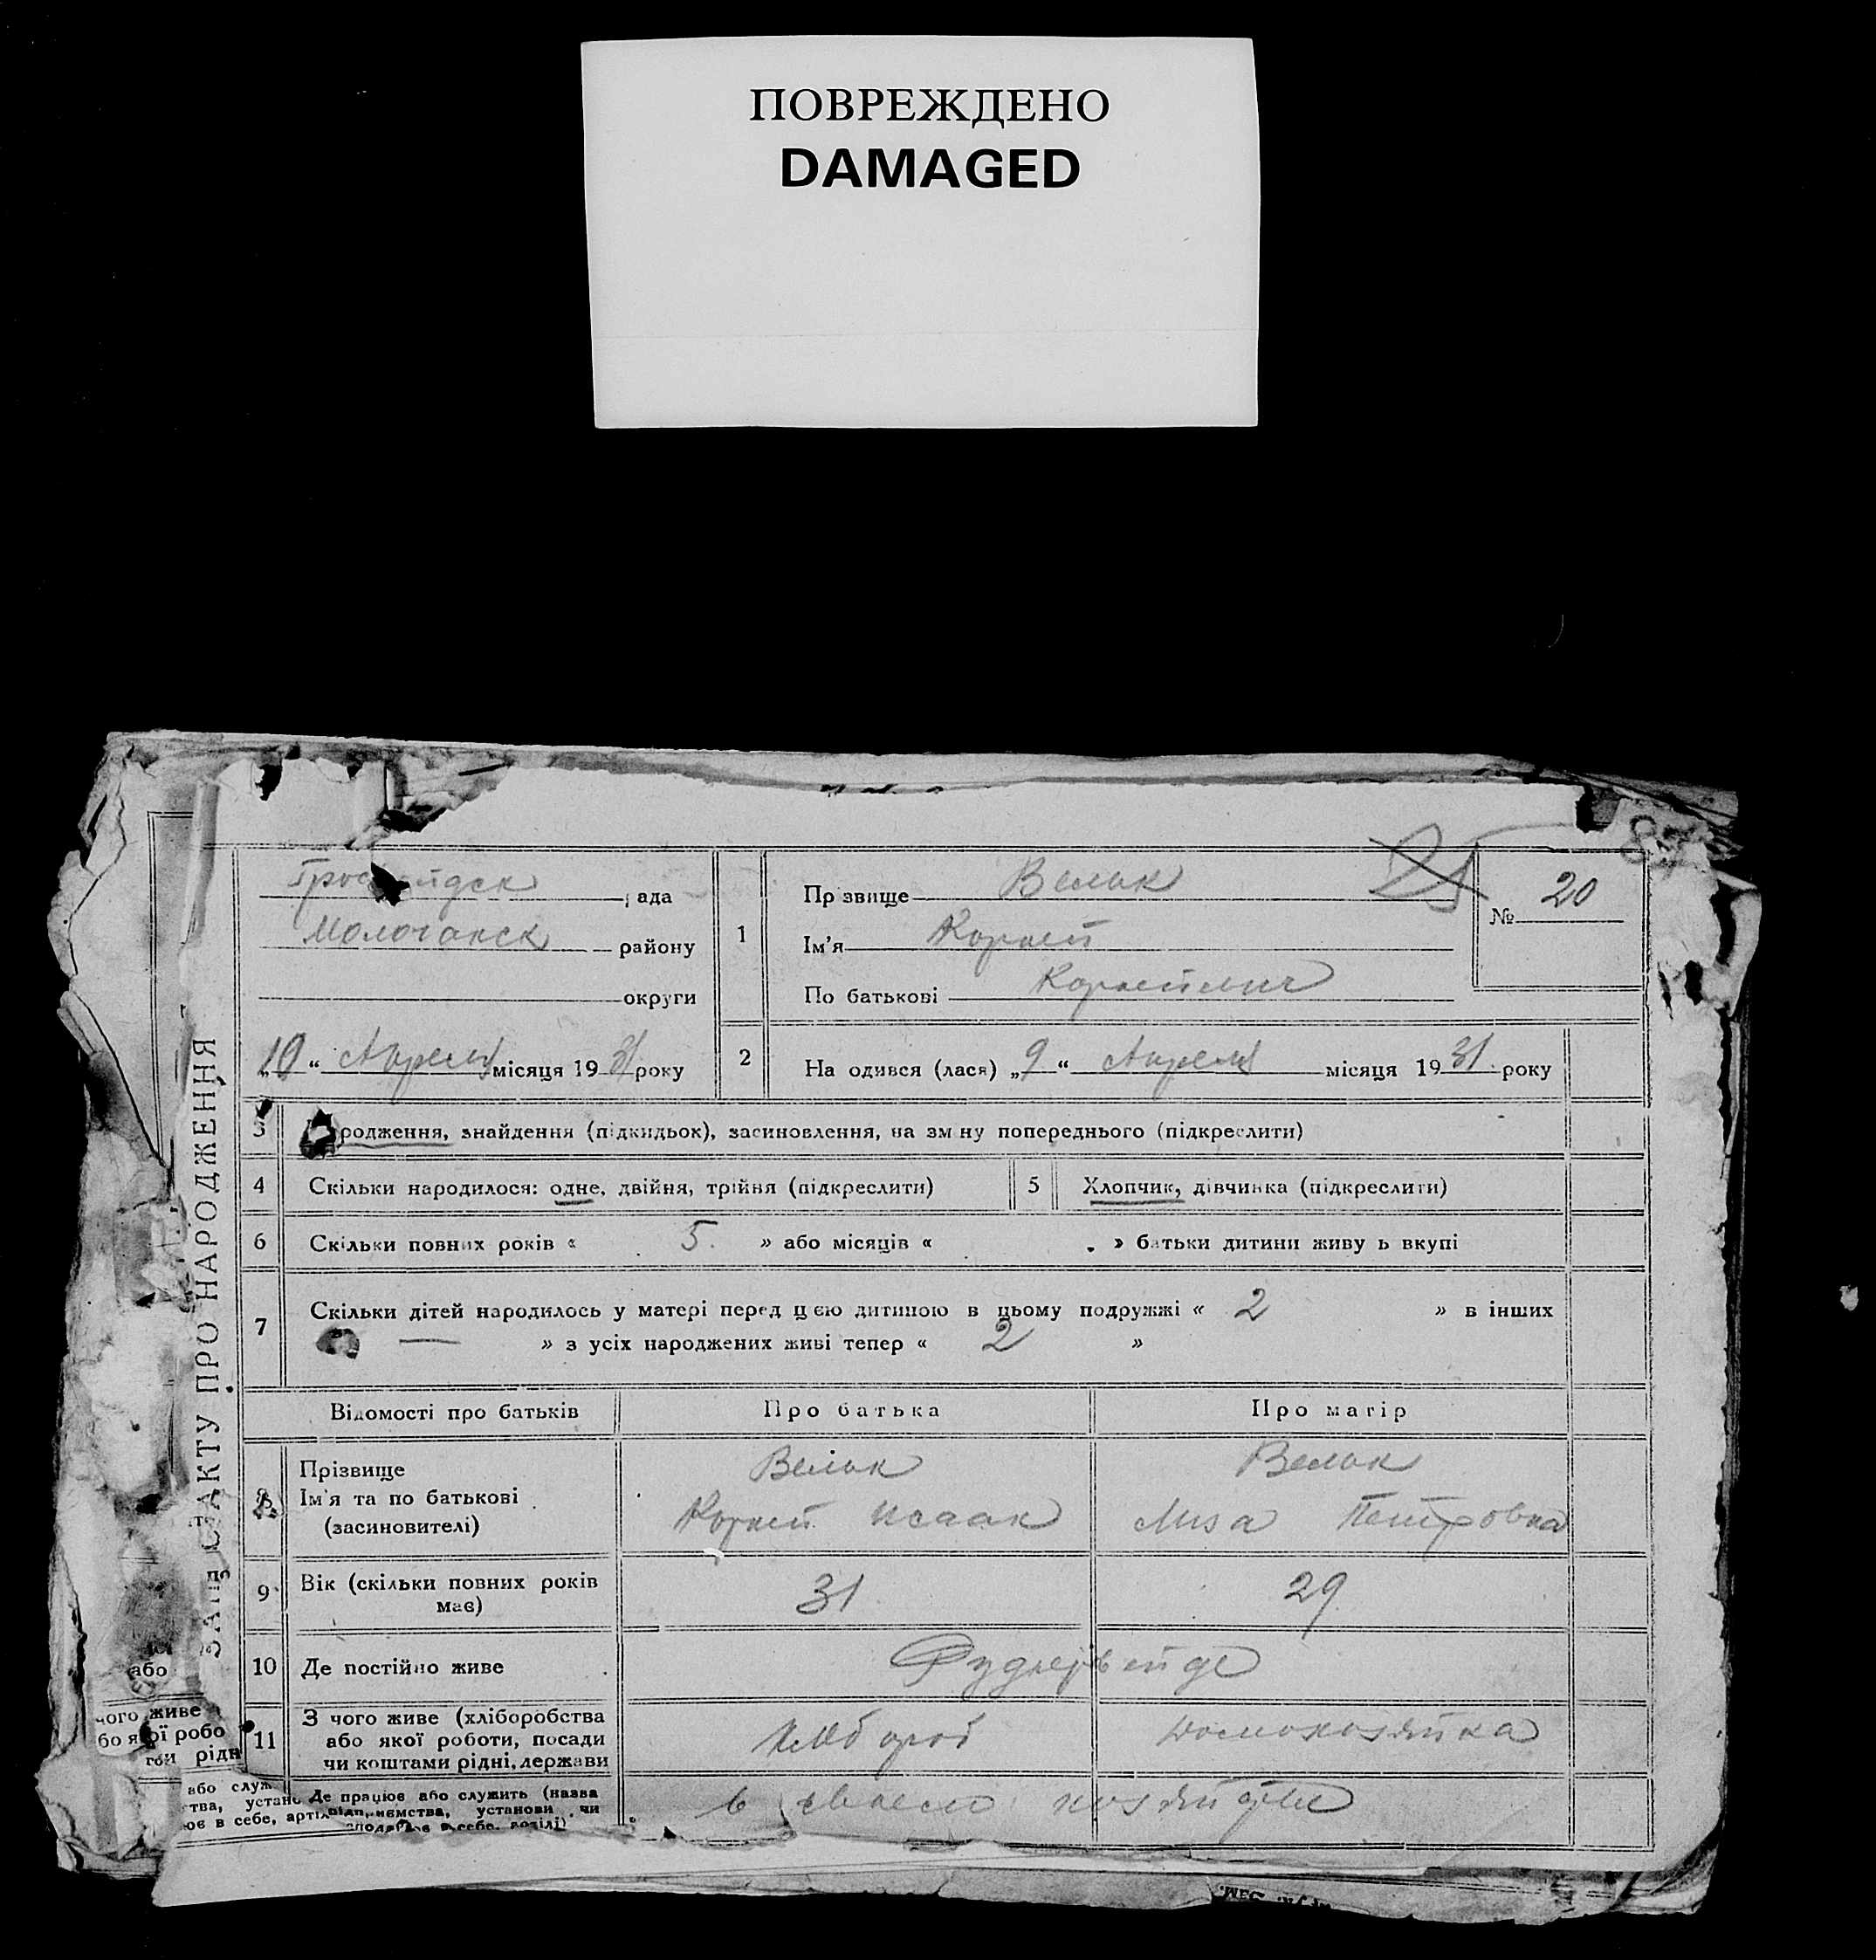 ПОВРЕЖДЕНО
DAMAGED
20
№
рада
Молочанск району
округи
„10“ Апреля місяця 1931 року
1
Пр звище Велык
Ім'я Корней
По батькові Корнеевич
2
На одився (лася) „9“ Апреля місяця 1931 року
ПРО НАРОДЖЕННЯ
3 родження, знайдення (підкидьок), засиновлення, на зм ну попереднього (підкреслити)
4 Скільки народилося: одне, двійня, трійня (підкреслити)
5 Хлопчик, дівчинка (підкреслити)
6 Скільки повних років « 5. » або місяців « » батьки дитини живу ь вкупі
7 Скільки дітей народилось у матері перед цією дитиною в цьому подружжі « 2 » в інших
— » з усіх народжених живі тепер « 2 »
Відомості про батьків
Про батька
Про матір
8
Прізвище
Ім'я та по батькові
(засиновителі)
Велык
Корней Исаак
Велык
Лиза Петровна
9 Вік (скільки повних років
має)
31
29
10 Де постійно живе
11
З чого живе (хліборобства
або якої роботи, посади
чи коштами рідні, держави
Хлебороб
Домохозяйка
Де працює або служить (назва
підприємства, установи чи
в себе,
в своем
або
чого живе
або служ
в себе,